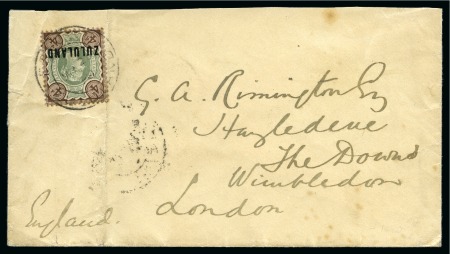 ZULULAND
G. A. Rimington Esq
Hazledene
The Downs
Wimbledon
London
England.